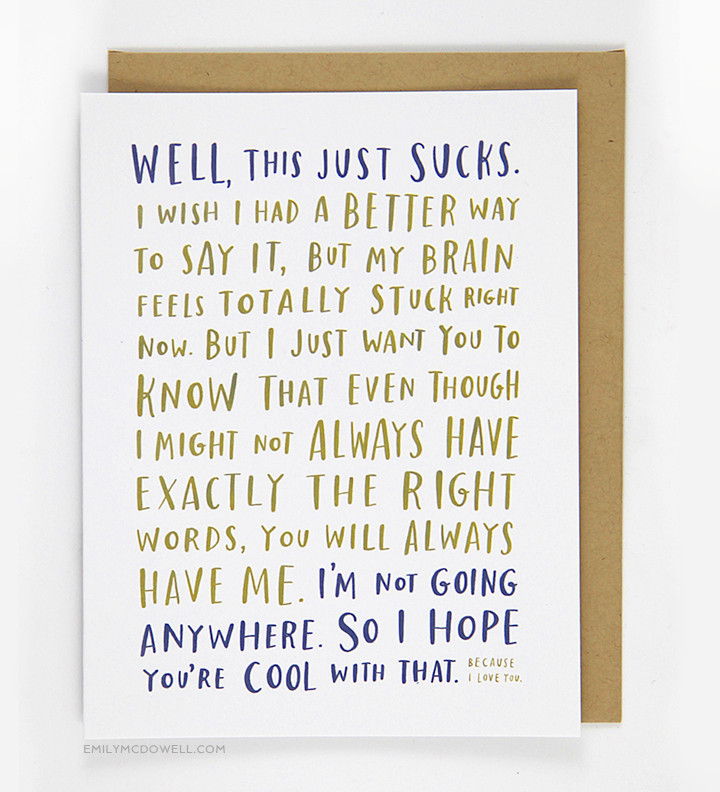 WELL, THIS JUST SUCKS.
I WISH I HAD A BETTER WAY
TO SAY IT, BUT MY BRAIN
FEELS TOTALLY STUCK RIGHT
NOW. BUT I JUST WANT YOU TO
KNOW THAT EVEN THOUGH
I MIGHT NOT ALWAYS HAVE
EXACTLY THE RIGHT
WORDS, YOU WILL ALWAYS
HAVE ME. I'M NOT GOING
ANYWHERE. SO I HOPE
YOU'RE COOL WITH THAT.
BECAUSE
I LOVE YOU.
EMILYMCDOWELL.COM